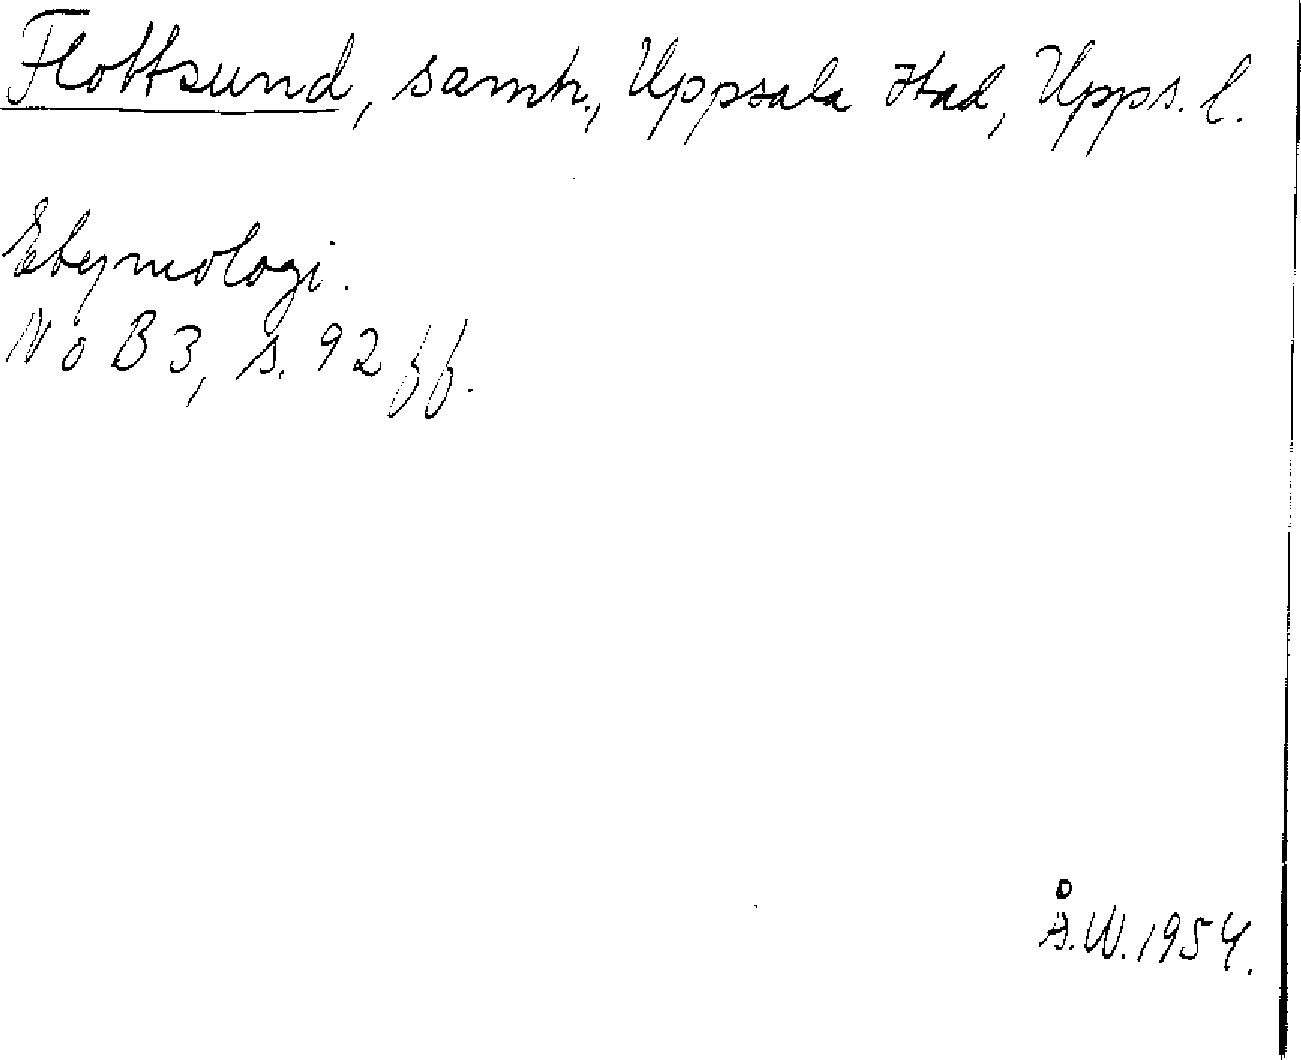 Flottsund, samh., Uppsala stad, Upps. l.
Etymologi.
NoB 3, s. 92 ff.
Å.W. 1954.